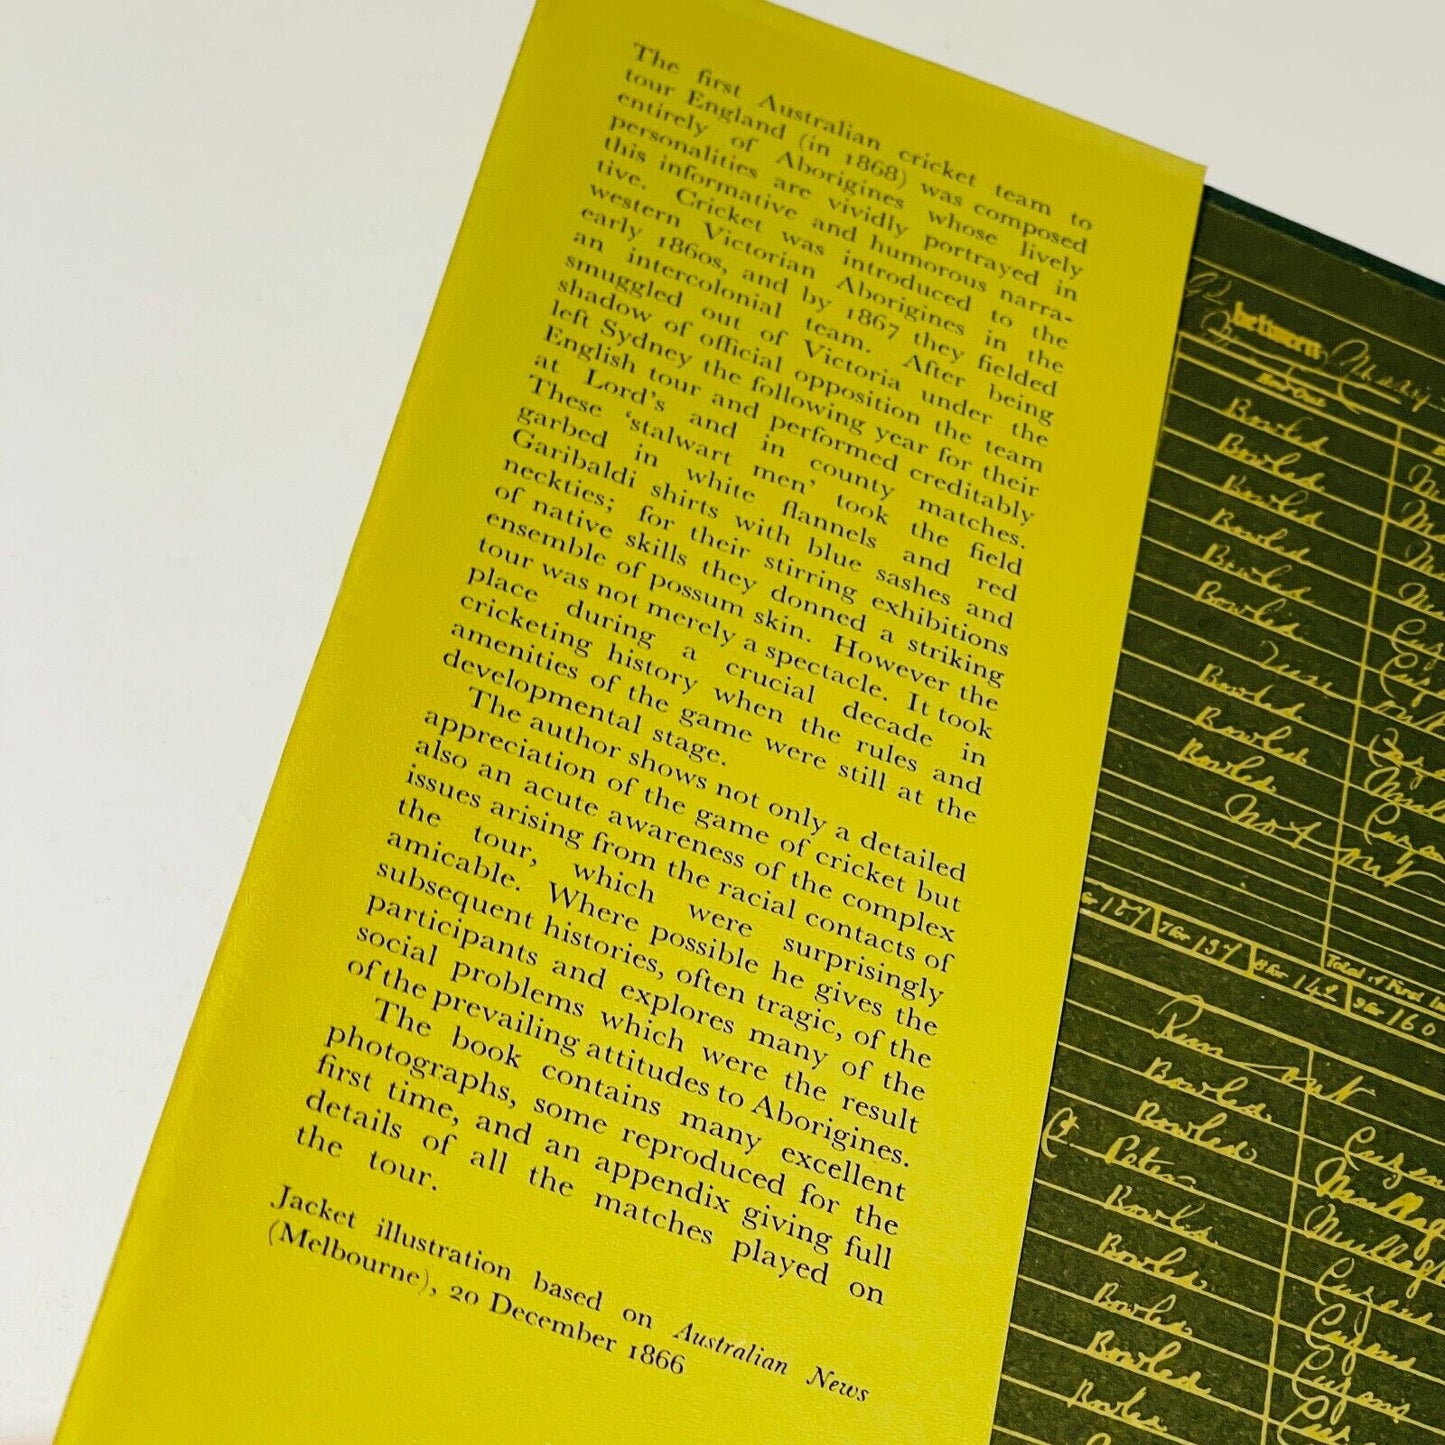 The first Australian cricket team to
tour England (in 1868) was composed
entirely of Aborigines whose lively
personalities are vividly portrayed in
this informative and humorous narra-
tive. Cricket was introduced to the
western Victorian Aborigines in the
early 1860s, and by 1867 they fielded
an intercolonial team. After being
smuggled out of Victoria under the
shadow of official opposition the team
left Sydney the following year for their
English tour and performed creditably
at Lord's and in county matches.
These 'stalwart men' took the field
garbed in white flannels and red
Garibaldi shirts with blue sashes and
neckties; for their stirring exhibitions
of native skills they donned a striking
ensemble of possum skin. However the
tour was not merely a spectacle. It took
place during a crucial decade in
cricketing history when the rules and
amenities of the game were still at the
developmental stage.
The author shows not only a detailed
appreciation of the game of cricket but
also an acute awareness of the complex
issues arising from the racial contacts of
the tour, which were surprisingly
amicable. Where possible he gives the
subsequent histories, often tragic, of the
participants and explores many of the
social problems which were the result
of the prevailing attitudes to Aborigines.
The book contains many excellent
photographs, some reproduced for the
first time, and an appendix giving full
details of all the matches played on
the tour.
Jacket illustration based on Australian News
(Melbourne), 20 December 1866
between
How Out
Bowled
Bowled
Bowled
Bowled
Bowled
Bowled
Bowled
Bowled
Bowled
Not out
127 7 for 137 8 for 142 9 for 160
Total of First
Run out
Bowled
Bowled
Ct Peter
Bowled
Bowled
Bowled
Bowled
Bowled